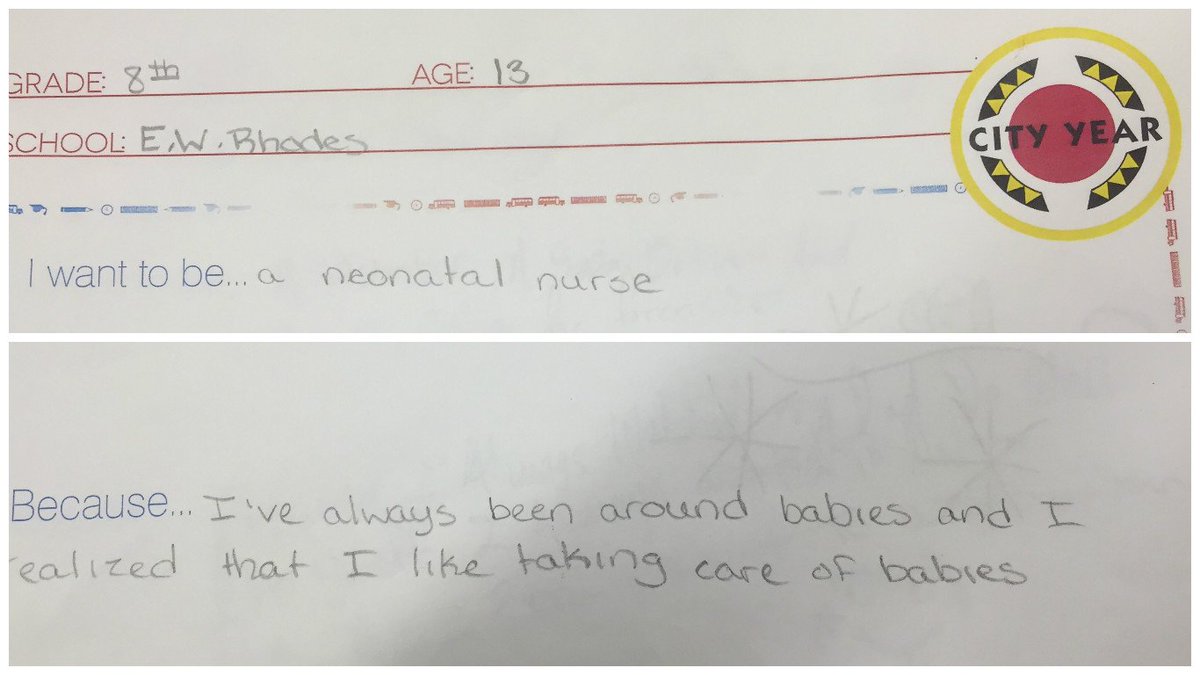 GRADE: 8th AGE: 13
SCHOOL: E.W. Rhodes
CITY YEAR
I want to be... a neonatal nurse
Because... I've always been around babies and I
realized that I like taking care of babies